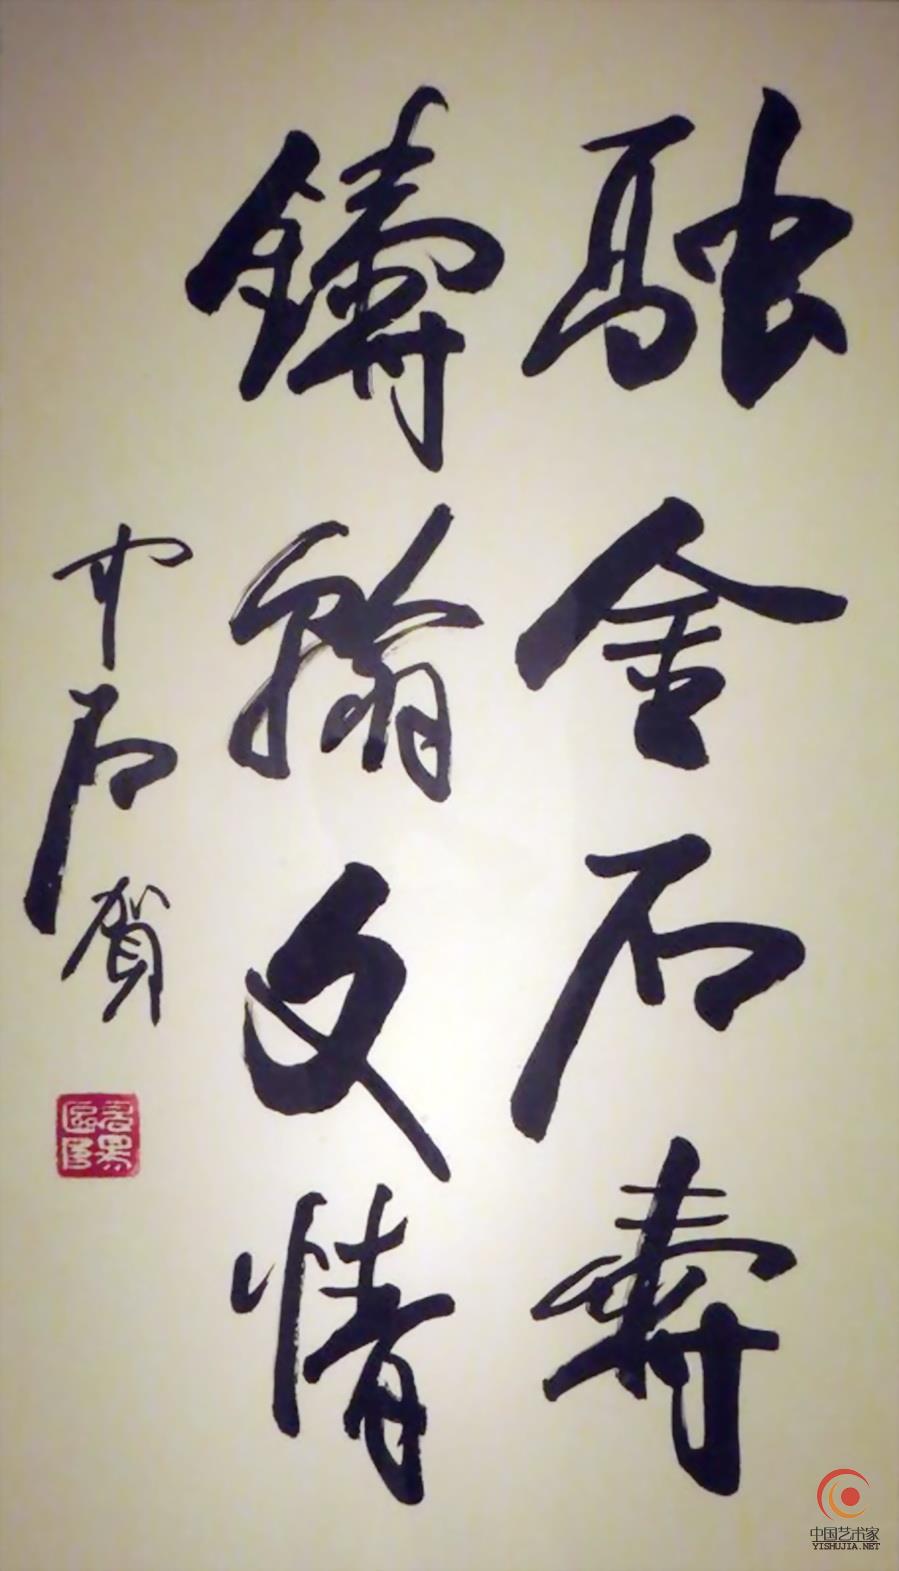 融金石壽
鑄翰文情
中石賀
中国艺术家
YISHUJIA.NET